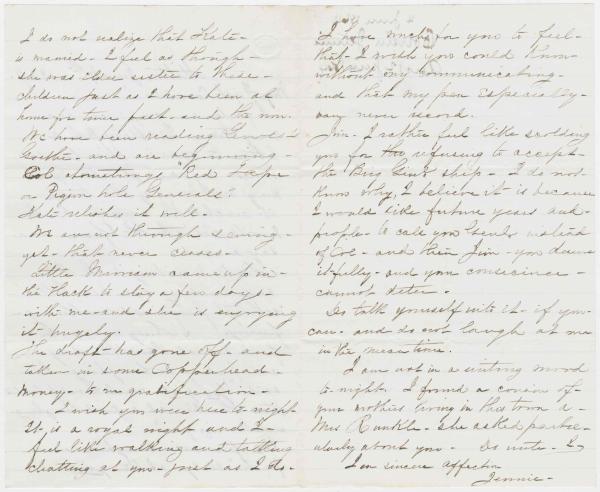 I do not realize that Kate
is married - I feel as though -
she was elder sister to these -
children just as I have been at
home for time past - and the now.
We have been reading Lewes's
Goethe - and are beginning -
Col. Armstrong's "Red Tape
or Pigeon hole Generals"
Kate relishes it well -
We are not through sewing -
yet - that never ceases -
Little Merriam came up in -
the Hack to stay a few days -
with me - and she is enjoying
it hugely.
The draft has gone off - and
taken in some Copperhead -
money - to my gratification -
I wish you were here to-night
It is a royal night and I -
feel like walking and talking
chatting at you - just as I do -
I have much for you to feel -
that I wish you could know -
without my communicating -
and that my pen especially -
may never record.
Jim - I rather feel like scolding
you for the refusing to accept -
the Brig Genl ship - I do not -
know why, I believe it is because
I would like future years and -
people - to call you Genl - instead
of Col - and then Jim - you deserve
it fully - and your conscience -
cannot deter -
Do talk yourself into it - if you -
can - and do not laugh at me
in the mean time.
I am not in a writing mood
to night. I found a cousin of -
your mothers living in this town a -
Mrs Runkle - she asked partic-
ularly about you - Do write - I
am sincere affection
Jennie -